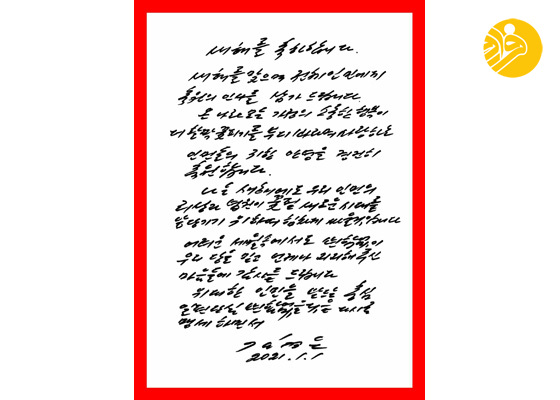 새해를 축하합니다.
새해를 맞으며 전체 인민에게
축원의 인사를 삼가 드립니다.
온 나라 모든 가정의 소중한 행복이
더 활짝 꽃피기를 부디 바라며 사랑하는
인민들의 귀한 안녕을 경건히
축원합니다.
나는 새해에도 우리 인민의
리상과 념원이 꽃필 새로운 시대를
앞당기기 위하여 힘차게 싸울것입니다.
어려운 세월속에서도 변함없이
우리 당을 믿고 언제나 지지해주신
마음들에 감사를 드립니다.
위대한 인민을 받드는 충심
일편단심 변함없을것을 다시금
맹세하면서
김정은
2021.1.1